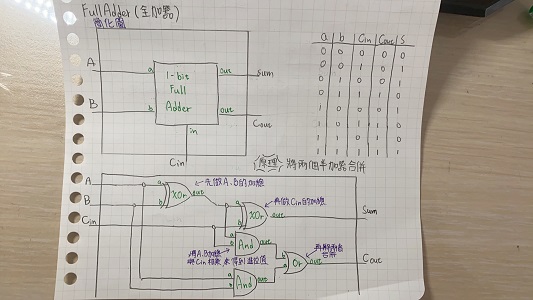 Full Adder (全加器)
簡化圖
A
B
a
b
1-bit
Full
Adder
out
out
in
Sum
Cout
Cin
a b Cin Cout S
0 0 0 0 0
0 0 1 0 1
0 1 0 0 1
0 1 1 1 0
1 0 0 0 1
1 0 1 1 0
1 1 0 1 0
1 1 1 1 1
原理 將兩個半加器合併
A
B
Cin
a
b
XOr
out
先做A.B的加總
a
b
XOr
out
再做Cin的加總
Sum
a
b
And
out
用A.B加總
與Cin相乘,來得到進位值
a
b
And
out
a
b
Or
out
再將兩者
合併
Cout